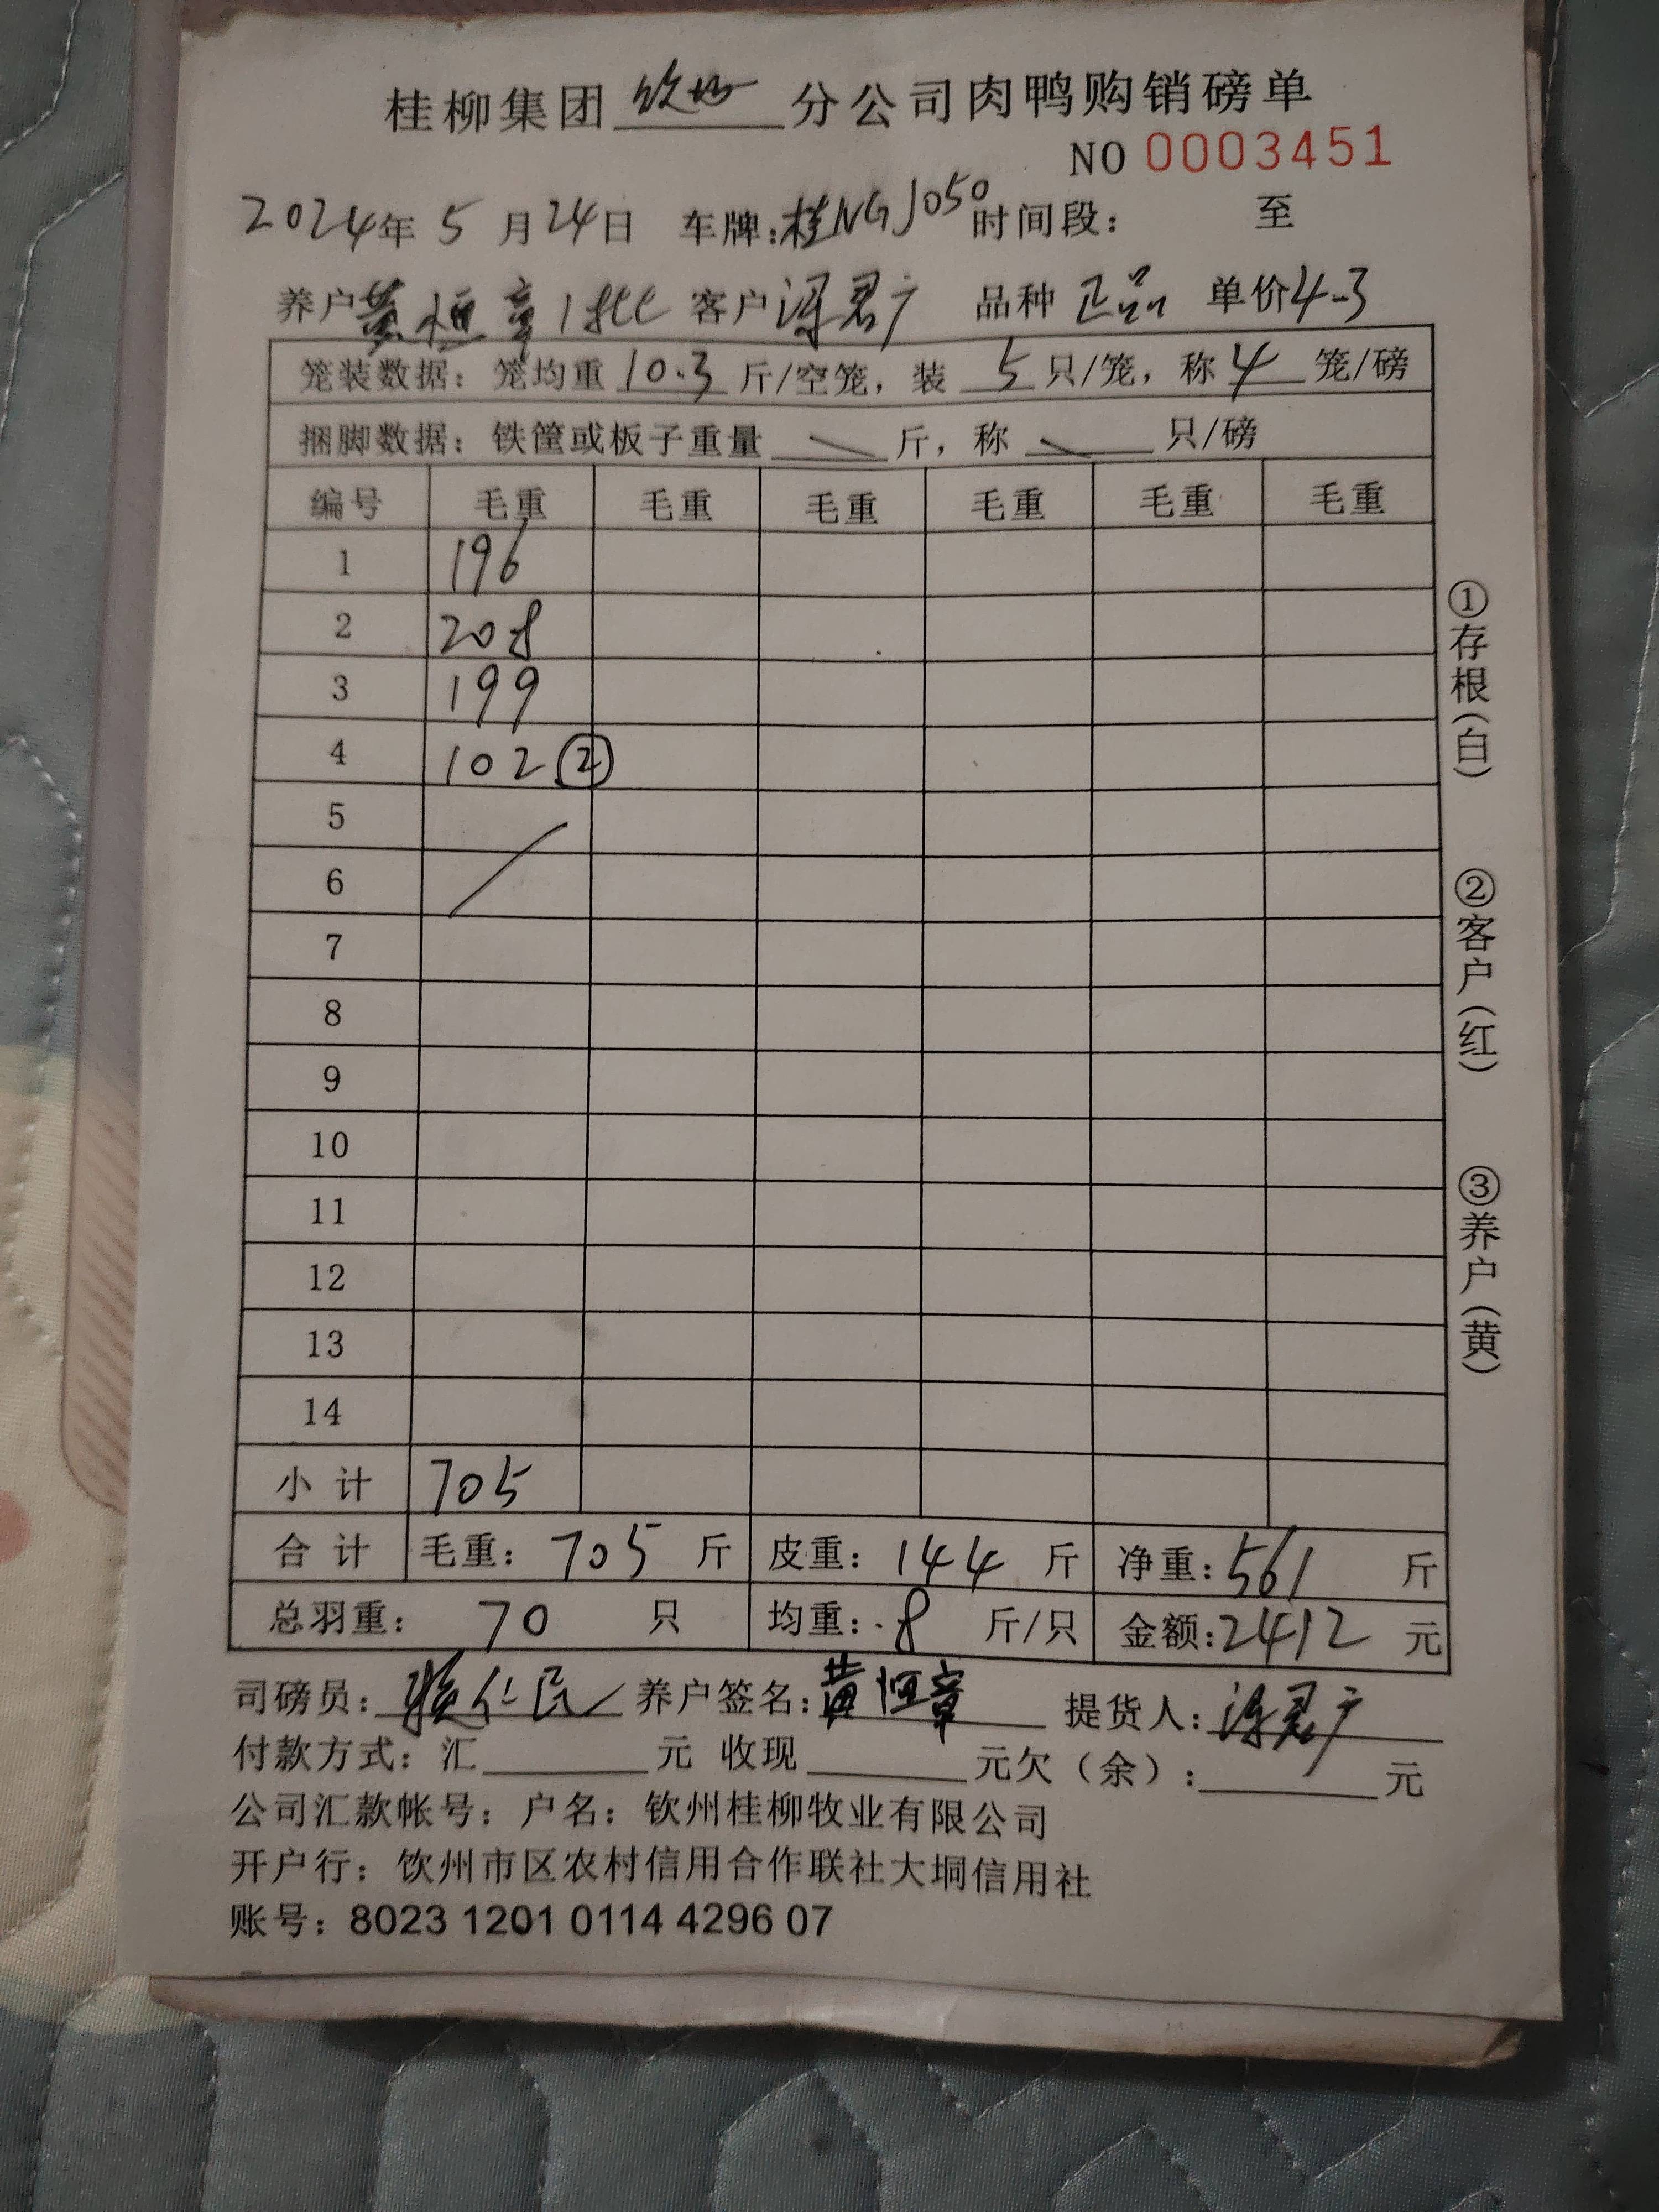 桂柳集团 钦州 分公司肉鸭购销磅单
NO 0003451
2024年 5 月 24日 车牌:桂NGJ050 时间段: 至
养户 黄恒章1批 客户 品种 正品 单价4.3
笼装数据: 笼均重 10.3 斤/空笼, 装 5 只/笼, 称 4 笼/磅
捆脚数据: 铁筐或板子重量 \ 斤, 称 \ 只/磅
编号 毛重 毛重 毛重 毛重 毛重 毛重
1 196
2 208
3 199
4 102 ②
5
6
7
8
9
10
11
12
13
14
小计 705
合计 毛重: 705 斤 皮重: 144 斤 净重: 561 斤
总羽重: 70 只 均重: 8 斤/只 金额: 2412 元
司磅员: 养户签名: 黄恒章 提货人:
付款方式: 汇 元 收现 元欠(余): 元
公司汇款帐号: 户名: 钦州桂柳牧业有限公司
开户行: 钦州市区农村信用合作联社大垌信用社
账号: 8023 1201 0114 4296 07
①存根(白)
②客户(红)
③养户(黄)